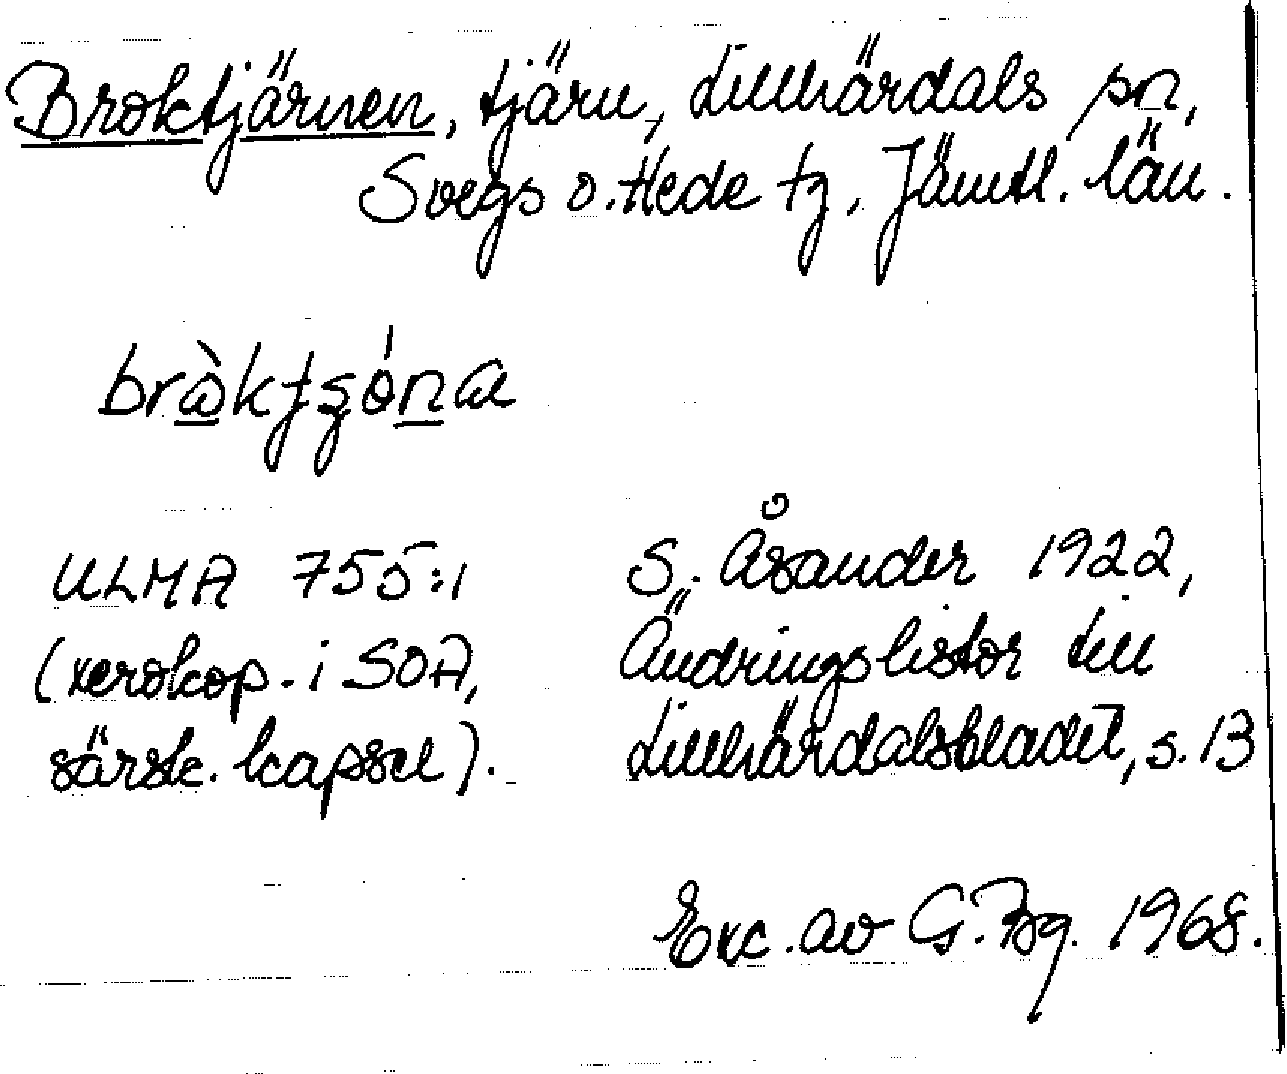 Broktjärnen, tjärn, Lillhärdals sn,
Svegs o. Hede tg, Jämtl. län.
ULMA 755:1
(xerokop. i SOA,
särsk. kapsel).
S. Åsander 1922,
Ändringslistor till
Lillhärdalsbladet, s. 13
Exc. av G. Bg. 1968.